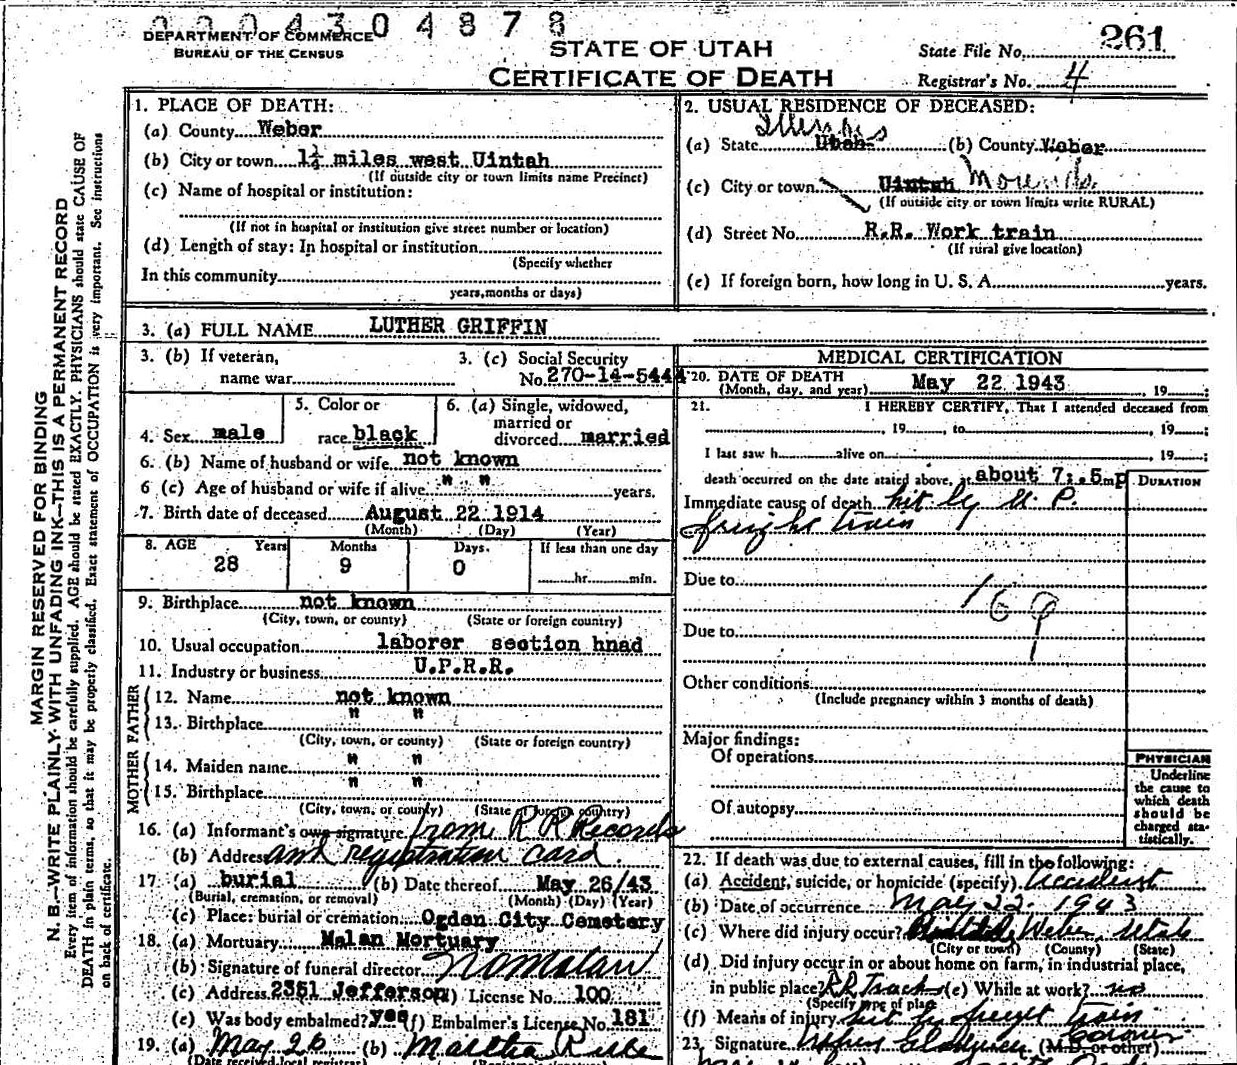 0004304878
DEPARTMENT OF COMMERCE
BUREAU OF THE CENSUS
STATE OF UTAH
CERTIFICATE OF DEATH
State File No. 261
Registrar's No. 4
MARGIN RESERVED FOR BINDING
N. B.—WRITE PLAINLY WITH UNFADING INK—THIS IS A PERMANENT RECORD
Every item of information should be carefully supplied. AGE should be stated EXACTLY. PHYSICIANS should state CAUSE OF
DEATH in plain terms, so that it may be properly classified. Exact statement of OCCUPATION is very important. See instructions
on back of certificate.
1. PLACE OF DEATH:
(a) County Weber
(b) City or town 1¼ miles west Uintah
(If outside city or town limits name Precinct)
(c) Name of hospital or institution:
(If not in hospital or institution give street number or location)
(d) Length of stay: In hospital or institution
(Specify whether
In this community
years, months or days)
2. USUAL RESIDENCE OF DECEASED:
Illinois
(a) State Utah (b) County Weber
(c) City or town Uintah Mounds.
(If outside city or town limits write RURAL)
(d) Street No. R.R. Work train
(If rural give location)
(e) If foreign born, how long in U. S. A. years.
3. (a) FULL NAME LUTHER GRIFFIN
3. (b) If veteran,
name war
3. (c) Social Security
No. 270-14-5444
4. Sex male
5. Color or
race black
6. (a) Single, widowed,
married or
divorced married
6. (b) Name of husband or wife not known
6 (c) Age of husband or wife if alive " " years.
7. Birth date of deceased August 22 1914
(Month) (Day) (Year)
8. AGE Years Months Days. If less than one day
28 9 0 hr. min.
9. Birthplace not known
(City, town, or county) (State or foreign country)
10. Usual occupation laborer section hnad
11. Industry or business U.P.R.R.
FATHER
12. Name not known
13. Birthplace " "
(City, town, or county) (State or foreign country)
MOTHER
14. Maiden name " "
15. Birthplace " "
(City, town, or county) (State or foreign country)
16. (a) Informant's own signature from R R Records
(b) Address and registration card.
17. (a) burial (b) Date thereof May 26/43
(Burial, cremation, or removal) (Month) (Day) (Year)
(c) Place: burial or cremation Ogden City Cemetery
18. (a) Mortuary Malan Mortuary
(b) Signature of funeral director
(c) Address 2351 Jefferson (d) License No. 100
(e) Was body embalmed? yes (f) Embalmer's License No. 181
19. (a) May 26 (b) Martha
(Date received local registrar) (Registrar's signature)
MEDICAL CERTIFICATION
20. DATE OF DEATH
(Month, day, and year) May 22 1943 19 ;
21. I HEREBY CERTIFY, That I attended deceased from
, 19 , to , 19 ;
I last saw h alive on , 19 ;
death occurred on the date stated above, at about 7:.5 m p
DURATION
Immediate cause of death hit by U. P.
freight train
Due to 169
Due to
Other conditions
(Include pregnancy within 3 months of death)
Major findings:
Of operations
Of autopsy
PHYSICIAN
Underline
the cause to
which death
should be
charged sta-
tistically.
22. If death was due to external causes, fill in the following:
(a) Accident, suicide, or homicide (specify) Accident
(b) Date of occurrence May 22 1943
(c) Where did injury occur? Weber, Utah
(City or town) (County) (State)
(d) Did injury occur in or about home on farm, in industrial place,
in public place? RR Tracks (e) While at work? no
(Specify type of place)
(f) Means of injury hit by freight train
Coroner
23. Signature (M.D. or other)